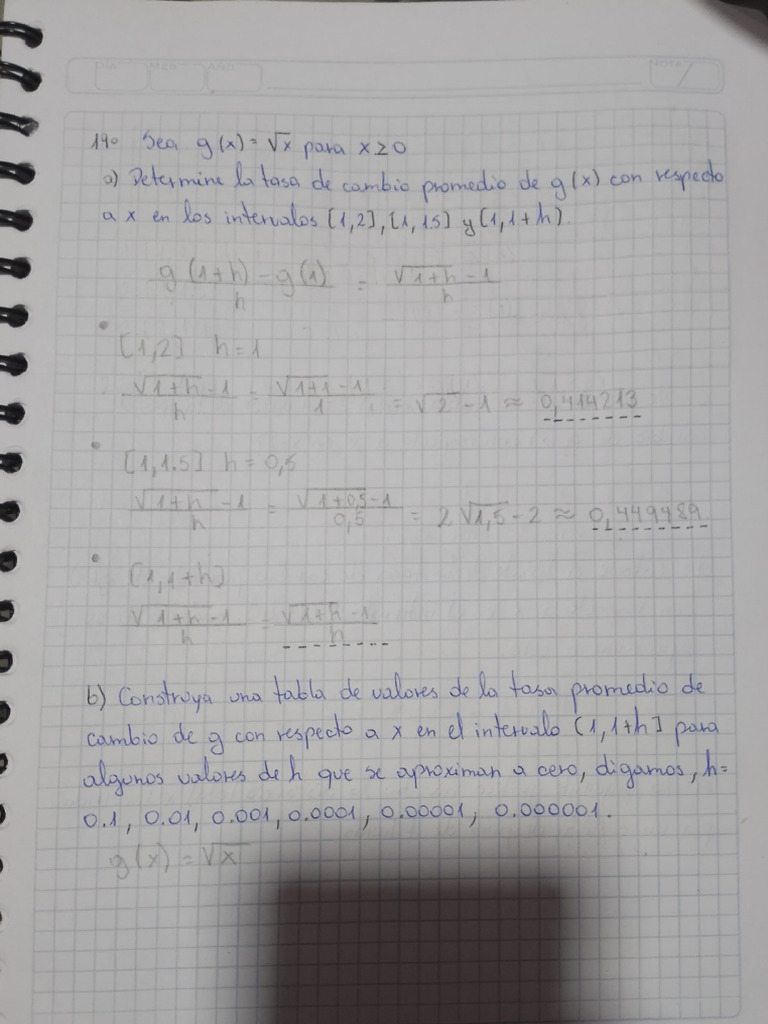 19. Sea g(x) = √x para x ≥ 0
a) Determine la tasa de cambio promedio de g(x) con respecto
a x en los intervalos [1,2], [1, 1.5] y [1, 1+h].
(g(1+h) - g(1))/h = (√(1+h) - 1)/h
• [1,2] h = 1
(√(1+h) - 1)/h = (√(1+1) - 1)/1 = √2 - 1 ≈ 0,414213
• [1, 1.5] h = 0,5
(√(1+h) - 1)/h = (√(1+0,5) - 1)/0,5 = 2√1,5 - 2 ≈ 0,449489
• [1, 1+h]
(√(1+h) - 1)/h = (√(1+h) - 1)/h
b) Construya una tabla de valores de la tasa promedio de
cambio de g con respecto a x en el intervalo [1, 1+h] para
algunos valores de h que se aproximan a cero, digamos, h=
0.1, 0.01, 0.001, 0.0001, 0.00001, 0.000001.
g(x) = √x